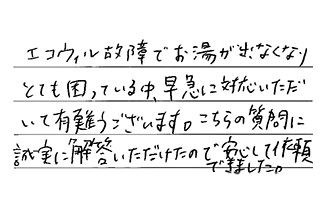 エコウィル故障でお湯が出なくなり
とても困っている中、早急に対応いただ
いて有難うございます。こちらの質問に
誠実に解答いただけたので安心して依頼
できました。